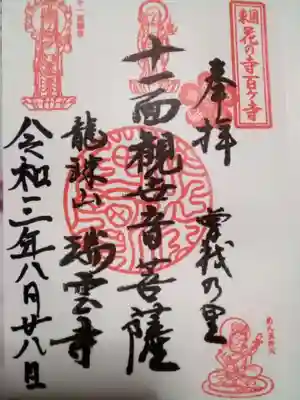 東国
花の寺百ヶ寺
奉拝
曽我乃里
十一面観世音菩薩
龍珠山 瑞雲寺
令和三年八月廿八日